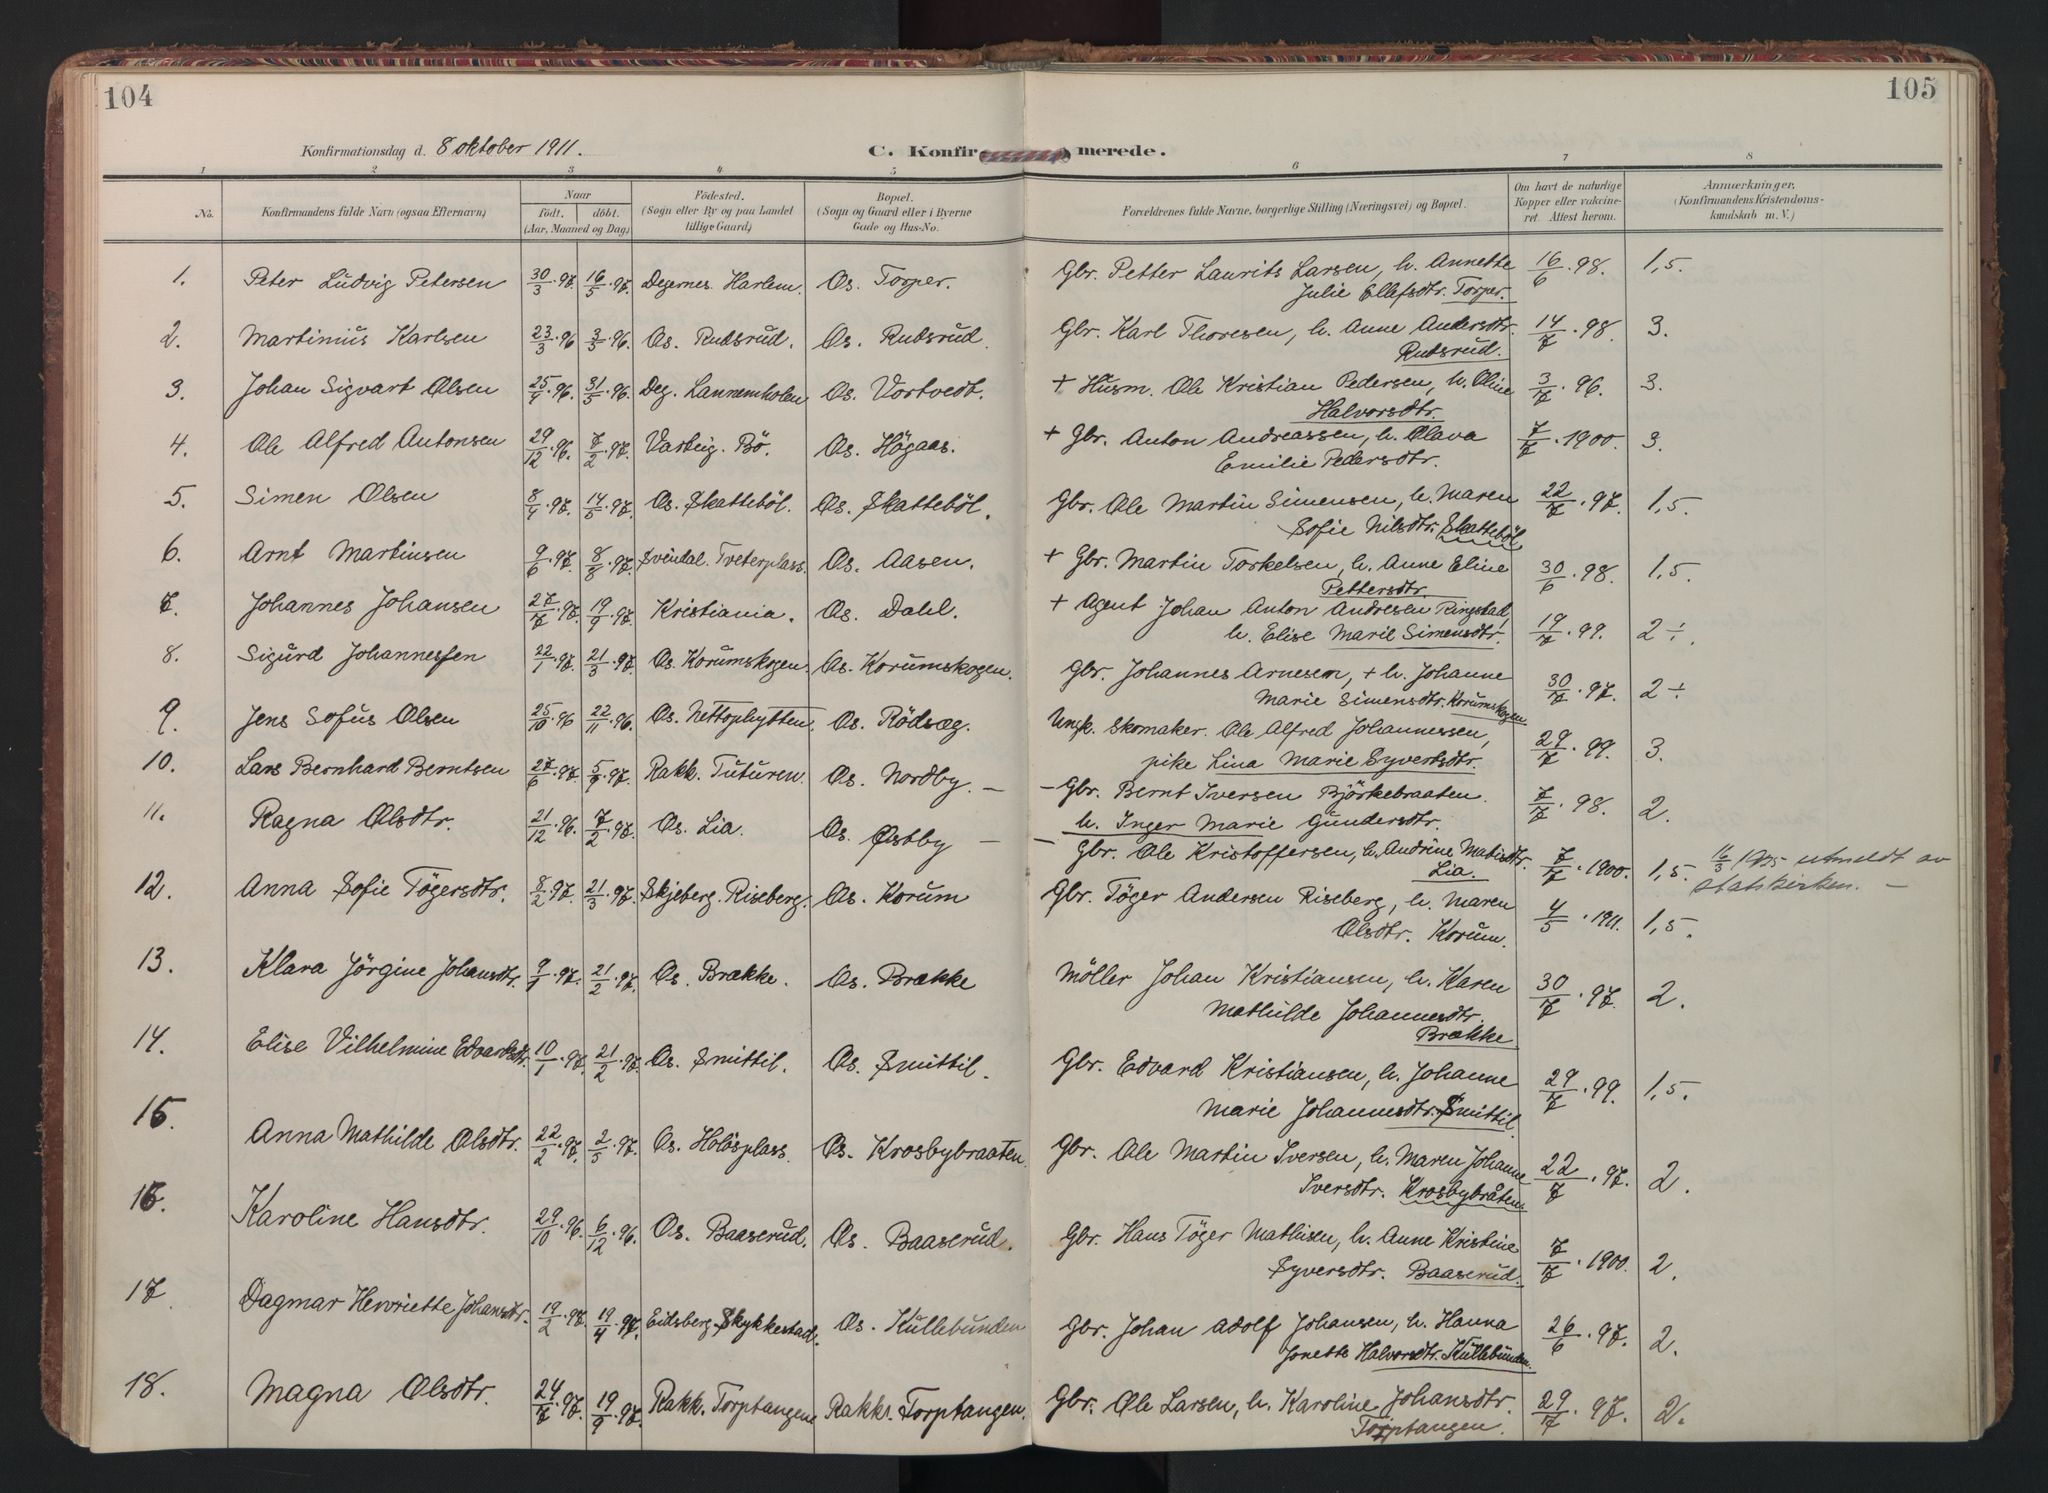 104
105
Konfirmationsdag d. 8 oktober 1911.
C. Konfirmerede.
1 2 3 4 5 6 7 8
No.
Konfirmandens fulde Navn (ogsaa Efternavn)
Naar
födt. döbt.
(Aar, Maaned og Dag)
Födested.
(Sogn eller By og paa Landet
tillige Gaard)
Bopæl.
(Sogn og Gaard eller i Byerne
Gade og Hus-No.
Forældrenes fulde Navne, borgerlige Stilling (Næringsvei) og Bopæl.
Om havt de naturlige
Kopper eller vakcine-
ret. Attest herom.
Anmærkninger.
(Konfirmandens Kristendoms-
kundskab m. V.)
1. Peter Ludvig Petersen 30/3.97. 16/5.97. Degernes. Harlem. Os. Torper. Gbr. Petter Laurits Larsen, h. Annette 16/6.98. 1,5.
Julie Ellefsdtr. Torper.
2. Martinius Karlsen 23/3.96 3/5.96. Os. Rudsrud. Os. Rudsrud. Gbr. Karl Thoresen, h. Anne Andersdtr. 14/7.98. 3.
Rudsrud.
3. Johan Sigvart Olsen 25/4.96. 31/5.96. Deg. Os. Vortvedt. + Husm. Ole Kristian Pedersen, h. Oline 3/7.96. 3.
Halvorsdtr.
4. Ole Alfred Antonsen 29/12.96. 7/2.97. Varteig. Bö. Os. Högaas. + Gbr. Anton Andreassen, h. Olava 7/7.1900. 3.
Emilie Pedersdtr.
5. Simen Olsen 8/4.97. 14/5.97. Os. Skatteböl. Os. Skatteböl. Gbr. Ole Martin Simensen, h. Maren 22/7.97. 1,5.
Sofie Nilsdtr. Skatteböl
6. Arnt Martinsen 9/6.97. 8/8.97. Svendal. Tveterplass. Os. Aasen. + Gbr. Martin Torkelsen, h. Anne Eline 30/6.98. 1,5.
Pettersdtr.
7. Johannes Johansen 27/7.97. 19/9.97. Kristiania. Os. Dahl. + Agent Johan Anton Andresen Ringstad, 19/7.99. 2÷.
h. Elise Marie Simensdtr.
8. Sigurd Johannessen 22/1.97. 21/3.97. Os. Korumskogen. Os. Korumskogen. Gbr. Johannes Arnesem, + h. Johanne 30/7.97. 2÷.
Marie Simensdtr. Korumskogen
9. Jens Sofus Olsen 25/10.96 22/11.96. Os. Nettophytten. Os. Rödsæg. Ungk. Skomaker. Ole Alfred Johannessen, 29/7.99. 3.
pike Lina Marie Syvertsdtr.
10. Lars Bernhard Berntsen 27/6.97. 5/9.97. Rakk. Tuturen. Os. Nordby. — – Gbr. Bernt Iversen Björkebraaten. 7/7.98. 2.
h. Inger Marie Gundersdtr.
11. Ragna Olsdtr. 21/12.96. 7/2.97. Os. Lia. Os. Østby — – Gbr. Ole Kristoffersen, h. Andrine Matisdtr. 7/7.1900. 1,5. 16/3 1925 utmeldt av
Lia. statskirken. —
12. Anna Sofie Tögersdtr. 8/2.97. 21/3.97. Skjeberg. Riseberg. Os. Korum Gbr. Töger Andersen Riseberg, h. Maren 4/5.1911. 1,5.
Olsdtr. Korum.
13. Klara Jörgine Johansdtr. 9/1.97. 21/2.97. Os. Brække. Os. Brække Möller Johan Kristiansen, h. Karen 30/7.97. 2.
Mathilde Johannesdtr.
Brække
14. Elise Vilhelmine Edvardsdtr. 10/1.97. 21/2.97. Os. Smittil. Os. Smittil. Gbr. Edvard Kristiansen, h. Johanne 29/7.99. 1,5.
Marie Johannesdtr. Smittil.
15. Anna Mathilde Olsdtr. 22/2.97. 2/5.97. Os. Holösplass. Os. Krosbybraaten. Gbr. Ole Martin Iversen, h. Maren Johanne 22/7.97. 2.
Iversdtr. Krosbybråten.
16. Karoline Hansdtr. 29/10.96. 6/12.96. Os. Baaserud. Os. Baaserud. Gbr. Hans Töger Mathisen, h. Anne Kristine 7/7.1900. 2.
Syversdtr. Baaserud.
17. Dagmar Henriette Johansdtr. 19/2.97. 19/4.97. Eidsberg. Skykkestad. Os. Kullebunden Gbr. Johan Adolf Johansen, h. Hanna 26/6.97. 2.
Jonette Halvorsdtr. Kullebunden.
18. Magna Olsdtr. 24/7.97. 19/9.97. Rakk. Torptangen Rakk. Torptangen. Gbr. Ole Larsen, h. Karoline Johansdtr. 29/7.97. 2.
Torptangen.